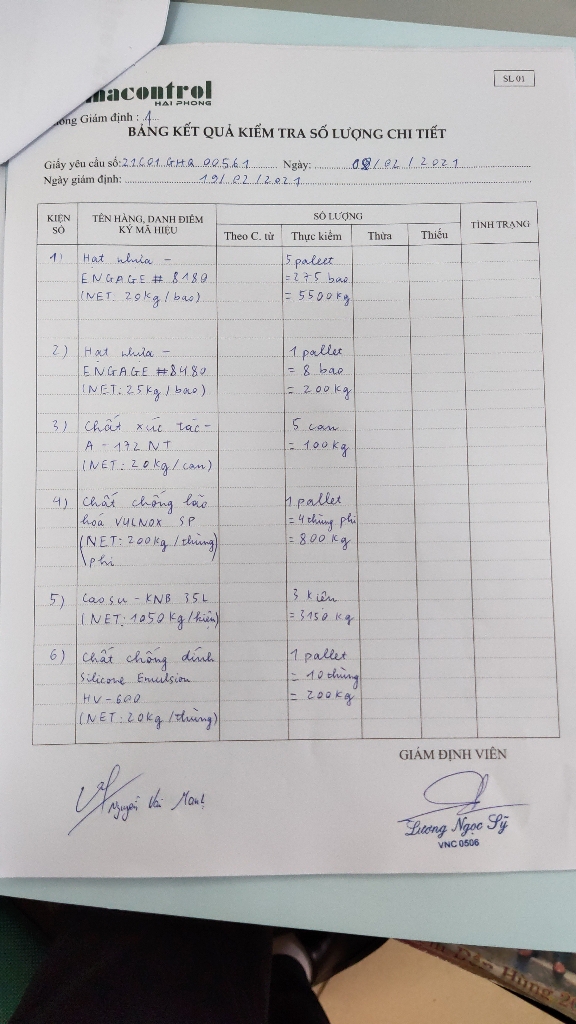 macontrol
HAI PHONG
SL 01
Giám định : 1
BẢNG KẾT QUẢ KIỂM TRA SỐ LƯỢNG CHI TIẾT
Giấy yêu cầu số: 21C01 GHQ 00561 Ngày: 08/02/2021
Ngày giám định: 19/02/2021
KIỆN SỐ
TÊN HÀNG, DANH ĐIỂM KÝ MÃ HIỆU
SỐ LƯỢNG
TÌNH TRẠNG
Theo C. từ Thực kiểm Thừa Thiếu
1) Hạt nhựa - 5 paleet
ENGAGE # 8180 = 275 bao
(NET: 20kg/bao) = 5500kg
2) Hạt nhựa - 1 pallet
ENGAGE #8480 = 8 bao
(NET: 25kg/bao) = 200kg
3) Chất xúc tác - 5 can
A - 172 NT = 100kg
(NET: 20kg/can)
4) Chất chống lão 1 pallet
hoá VULNOX SP = 4 thùng phi
(NET: 200kg/thùng = 800kg
phi)
5) Cao su - KNB 35L 3 kiện
(NET: 1050kg/kiện) = 3150 kg
6) Chất chống dính 1 pallet
Silicone Emulsion = 10 thùng
HV-600 = 200kg
(NET: 20kg/thùng)
GIÁM ĐỊNH VIÊN
Nguyễn
Lương Ngọc Sỹ
VNC 0506